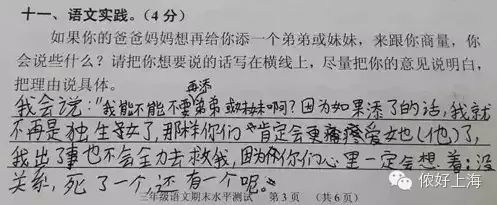 十一、语文实践。(4分)
如果你的爸爸妈妈想再给你添一个弟弟或妹妹,来跟你商量,你
会说些什么?请把你想要说的话写在横线上,尽量把你的意见说明白,
把理由说具体。
再添
我会说:“我能不能不要弟弟或妹妹啊?因为如果添了的话,我就
不再是独生女了,那样你们肯定会更疼爱她(他)了,
我出了事也不会全力去救我,因为你们心里一定会想着:没
关系,死了一个,还有一个呢。”
三年级语文期末水平测试 第3页 (共6页)
侬好上海